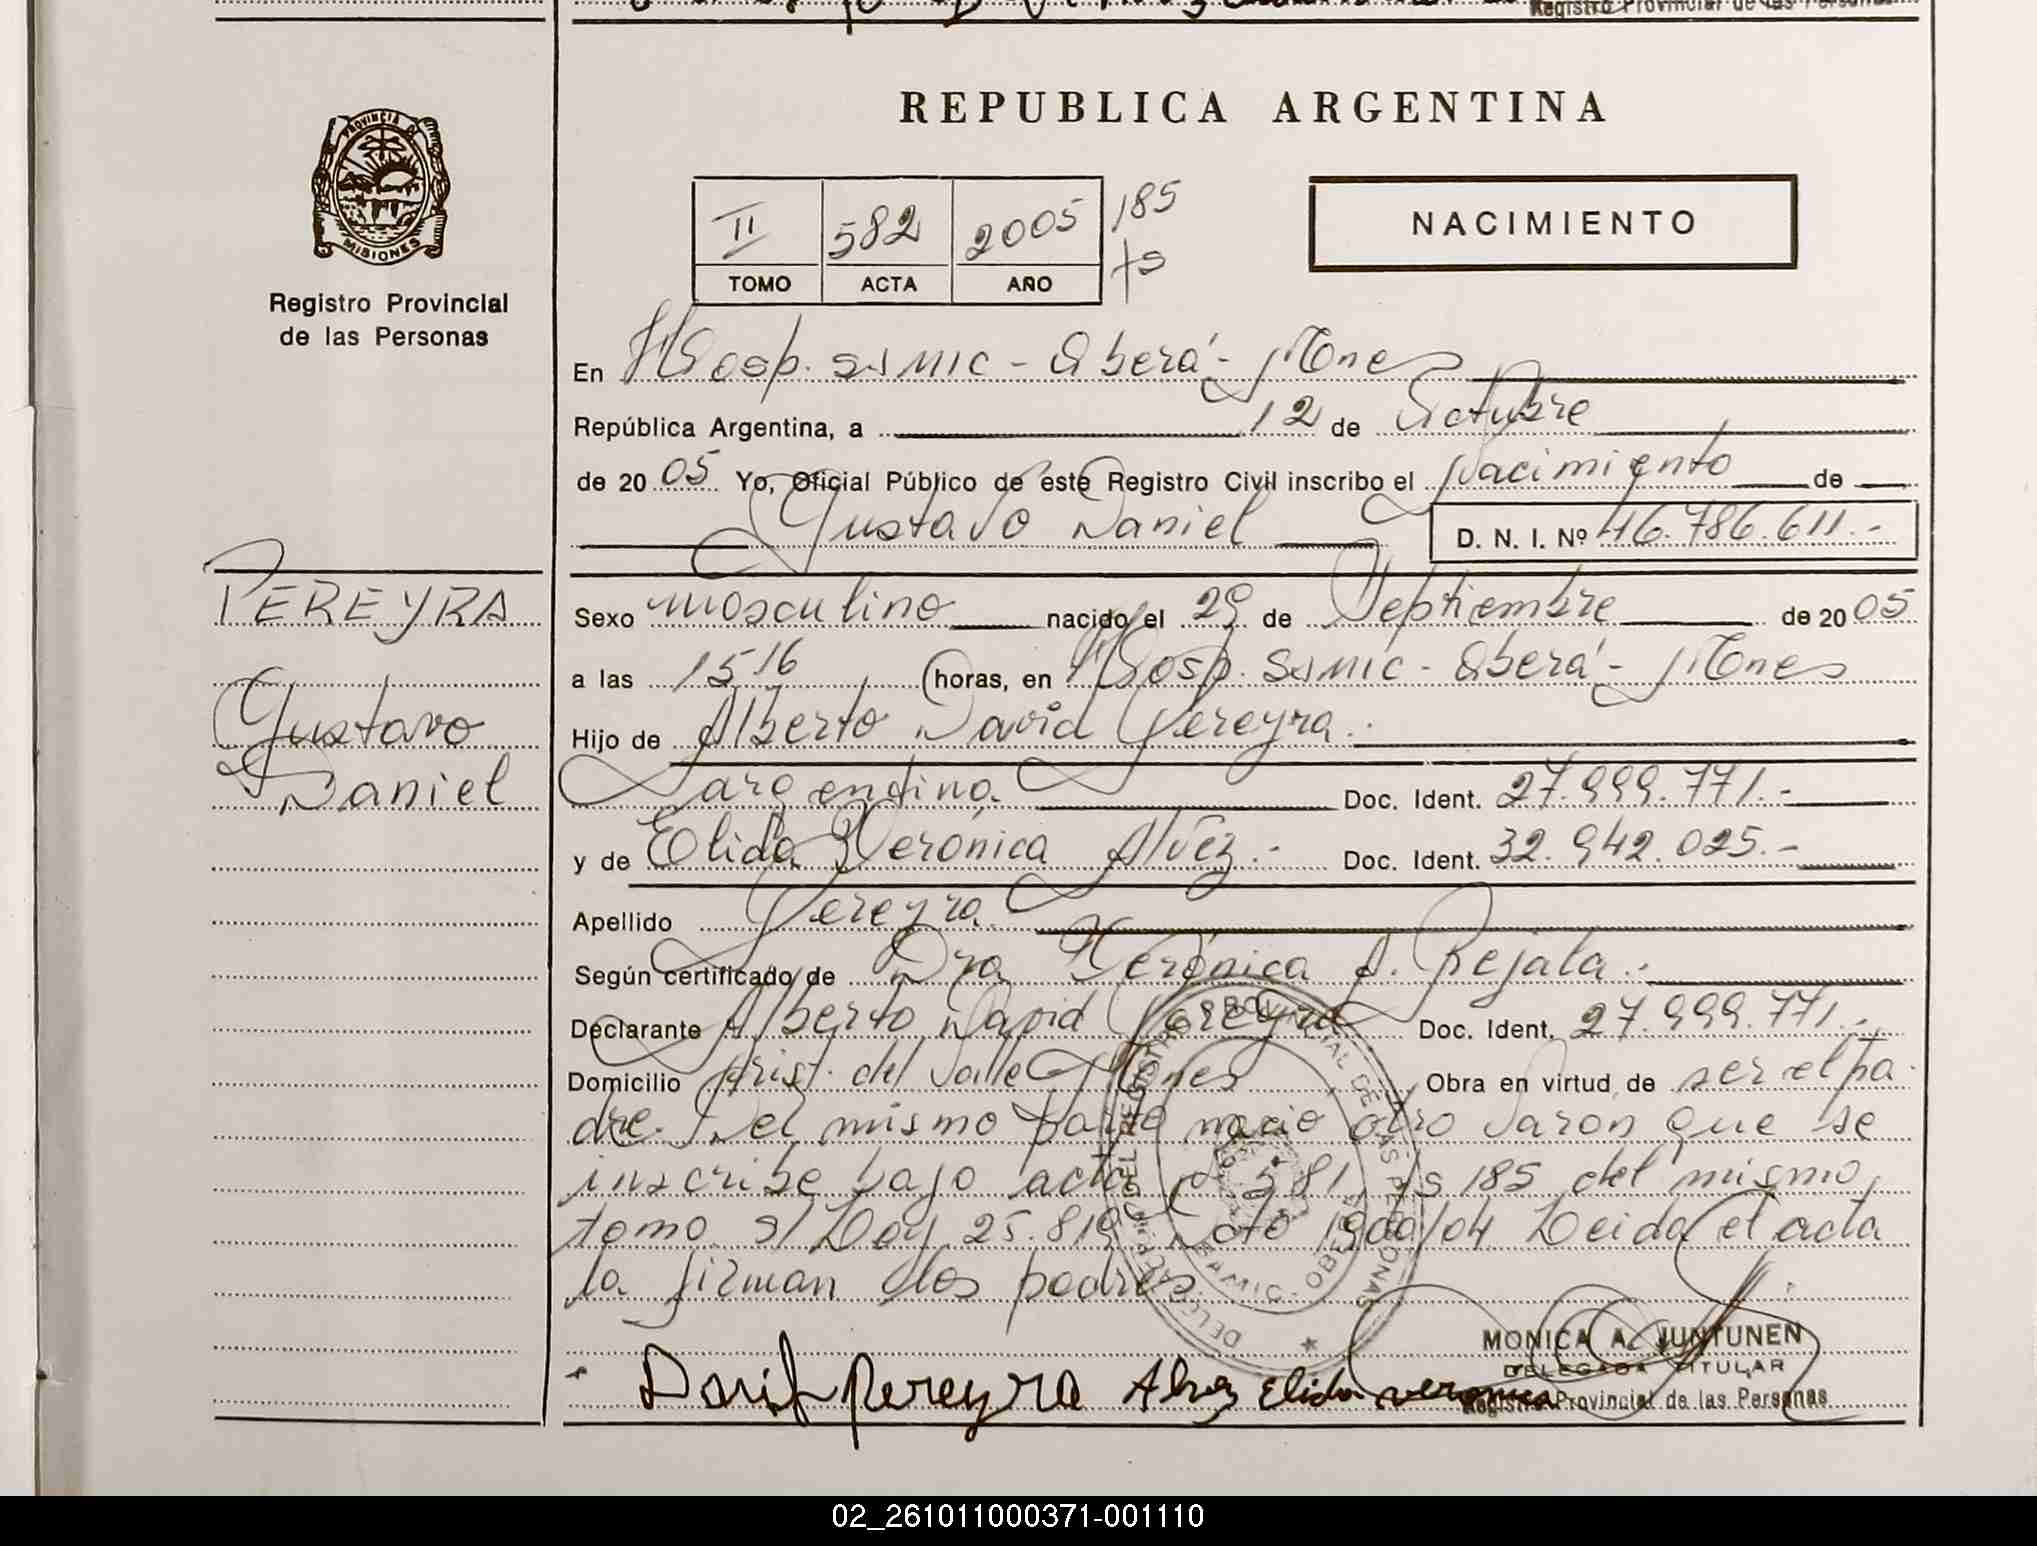 Registro Provincial de las Personas
PROVINCIA DE
MISIONES
Registro Provincial
de las Personas
REPUBLICA ARGENTINA
II 582 2005 185
TOMO ACTA AÑO fs
NACIMIENTO
En Hosp. SAMIC - Oberá - Mnes
República Argentina, a 12 de Octubre
de 20 05 Yo, Oficial Público de este Registro Civil inscribo el Nacimiento de
Gustavo Daniel D. N. I. Nº 46.786.611.-
PEREYRA
Gustavo
Daniel
Sexo masculino nacido el 29 de Septiembre de 20 05
a las 15 16 horas, en Hosp. SAMIC - Oberá - Mnes
Hijo de Alberto David Pereyra.
argentino. Doc. Ident. 27.999.771.-
y de Elida Verónica Alvez.- Doc. Ident. 32.942.025.-
Apellido Pereyra.
Según certificado de Dra Verónica A. Rejala.-
Declarante Alberto David Pereyra Doc. Ident. 27.999.771.-
Domicilio Arist. del Valle Mnes Obra en virtud de ser el pa
dre. Del mismo parto nació otro varón que se
inscribe bajo acta 581 fs 185 del mismo
tomo s/ Ley 25.819 Dto 1900/04 Leida el acta
la firman los padres.
DELEGACION SAMIC - OBERA
David Pereyra Alvez Elida veronica
MONICA A. JUNTUNEN
DELEGADA TITULAR
Registro Provincial de las Personas
02_261011000371-001110